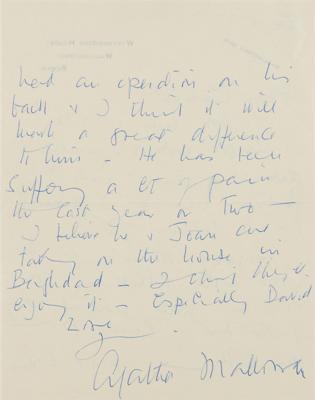 had an operation on his
back & I think it will
make a great difference
to him - He has been
suffering a lot of pain
the last year or two -
I believe he & Joan are
taking on the house in
Baghdad - I think they'll
enjoy it - Especially David
Love
Agatha Mallowan